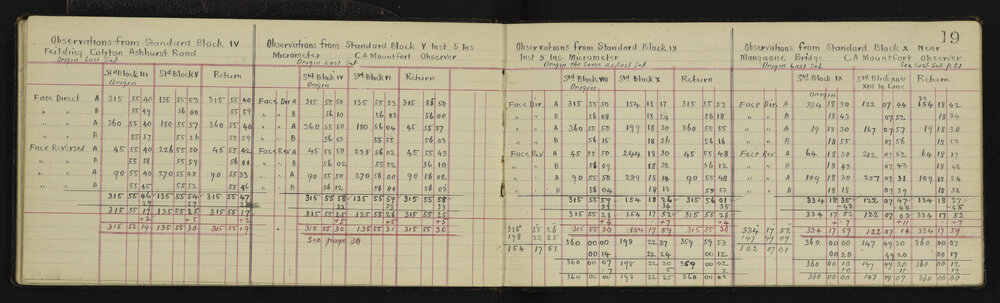 19
Observations from Standard Block IV
Feilding Colyton Ashhurst Road
Origin Last Set
Std Block III Std Block V Return
Origin
Face Direct A 315 55 40 135 55 53 315 55 40
" " B 55 49 56 00 55 59
" " A 360 55 40 180 55 57 360 55 40
" " B 55 37 55 56 55 59
Face Reversed A 45 55 40 226 55 50 45 55 42
" " B 55 58 55 59 56 01
" " A 90 55 40 270 55 48 90 55 33
" " B 55 45 55 52 55 46
315 55 46 135 55 54 315 55 47
315 55 17 135 55 25 315 55 17
+2 +5
315 55 19 135 55 30 315 55 19
Observations from Standard Block V Inst 5 Ins
Micrometer CA Mountfort Observer
Origin Last Set
Std Block IV Std Block VI Return
Origin
Face Dir A 315 55 50 135 55 53 315 55 50
" " B 56 10 56 03 56 00
" " A 360 55 50 180 56 04 45 55 57
" " B 56 03 55 55 56 03
Face Rev A 45 55 50 235 56 02 45 55 43
" " B 56 02 55 52 56 10
" " A 90 55 50 270 56 00 90 56 02
" " B 56 12 56 00 56 03
315 55 58 135 55 59 315 55 58
33 33 33
315 55 25 135 55 26 315 55 25
+5 +5 +5
315 55 30 135 55 31 315 55 30
See page 30
Observations from Standard Block IX
Inst 5 Ins Micrometer
Origin the Same as Last Set
Std Block VIII Std Block XIII Return
Origin
Face Dir A 315 55 50 154 18 17 315 55 57
" " B 56 08 18 24 56 18
" " A 360 55 50 199 18 30 360 55 55
" " B 56 15 18 26 56 16
Face Rev A 45 55 50 244 18 30 45 55 48
" " B 56 09 18 32 56 12
" " A 90 55 50 289 18 14 90 55 48
" " B 56 04 18 13 56 53
315 55 59 154 18 26 315 56 01
315 55 26 154 17 52 315 55 26
315 55 30 154 17 57 315 55 30
315 55 26
198 22 25
154 17 51
360 00 00 198 22 37 359 59 53
00 14 22 24 00 12
360 00 07 198 22 30 360 00 02
360 00 00 198 22 25 360 00 00
Observations from Standard Block X Near
Mangaone Bridge CA Mountfort Observer
Origin Last Set See Last Set p. 21
Std Block IX Std Block XIV Return
XIII In Line
Origin
Face Dir A 334 18 30 122 07 44 154 18 42
" " B 18 43 07 52 18 34
" " A 19 18 30 167 07 57 19 18 30
" " B 18 55 07 56 18 59
Face Rev A 64 18 30 212 07 52 64 18 17
" " B 18 43 07 43 18 42
" " A 109 18 30 257 07 31 109 18 24
" " B 18 18 07 39 18 32
334 18 35 122 07 47 334 18 37
334 17 52 122 07 03 334 17 52
334 17 59 122 07 16 334 17 59
334 17 52
147 49 09
122 07 01
360 00 00 147 49 20 360 00 07
00 20 49 20 00 17
360 00 10 147 49 20 360 00 12
360 00 00 147 49 07 360 00 00